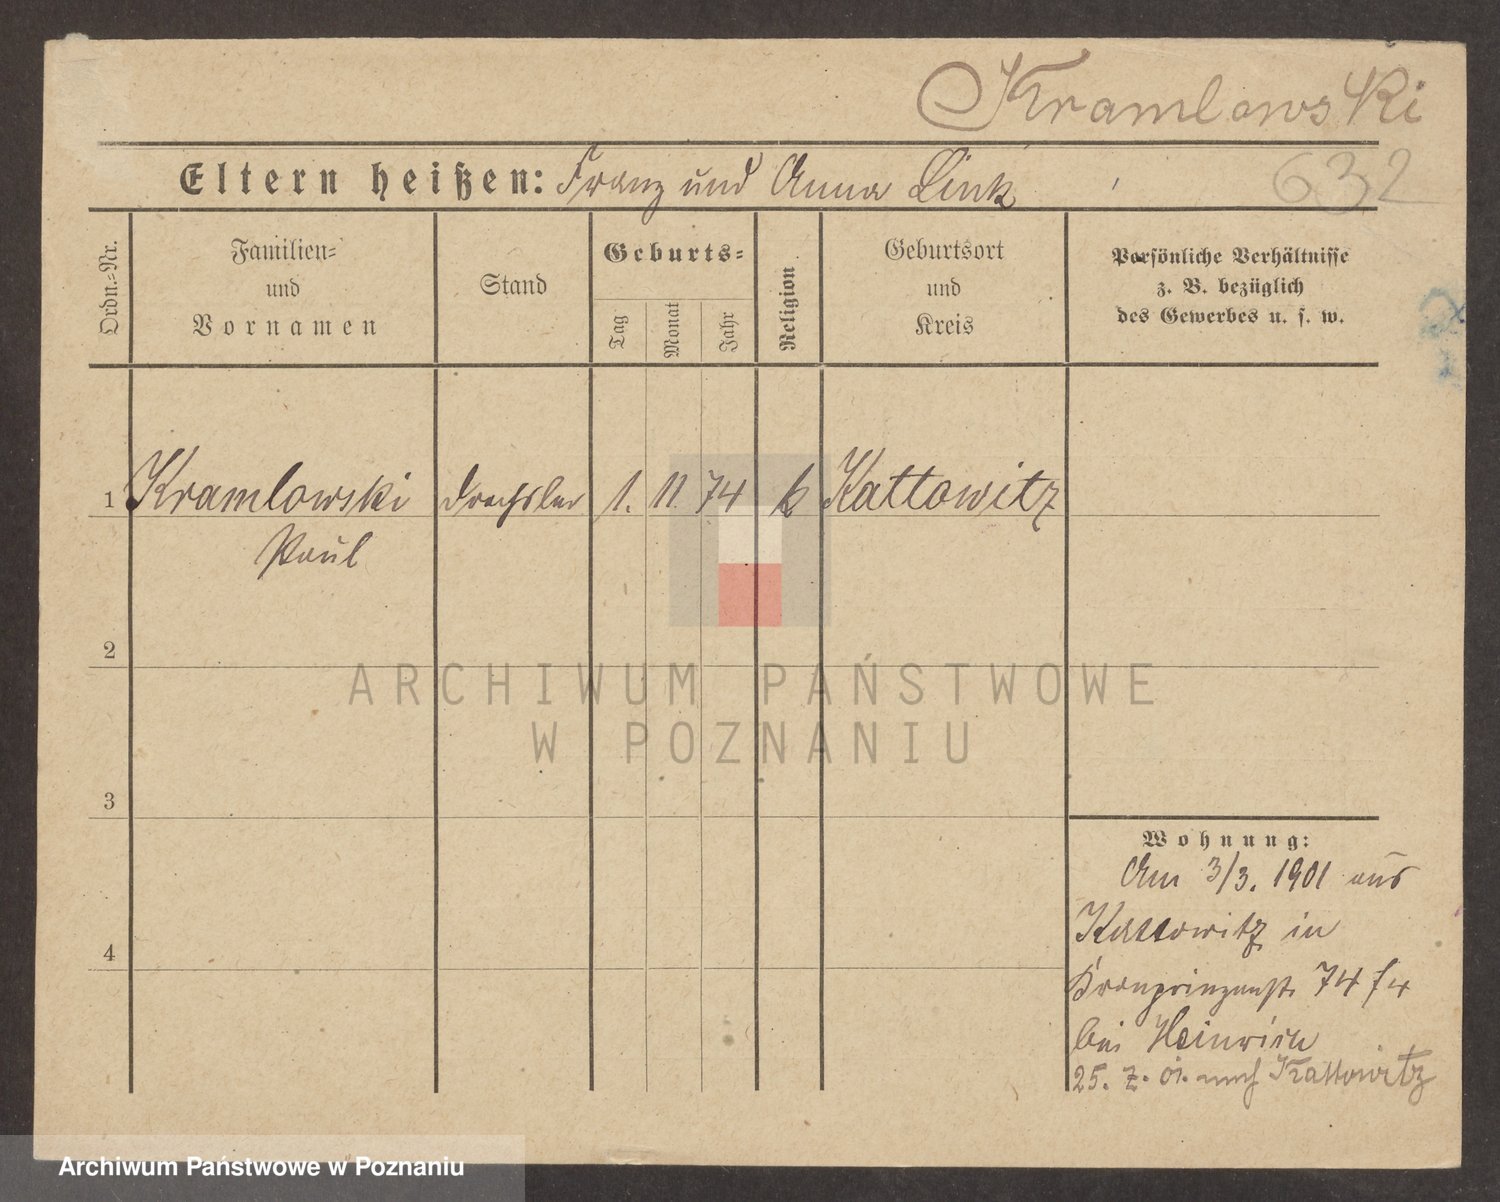 Kramlowski
632
Eltern heißen: Franz und Anna Link
Ordn.-Nr.
Familien-
und
Vornamen
Stand
Geburts-
Tag
Monat
Jahr
Religion
Geburtsort
und
Kreis
Persönliche Verhältnisse
z. B. bezüglich
des Gewerbes u. s. w.
1 Kramlowski Drechsler 1. 11. 74 k Kattowitz
Paul
2
3
4
Wohnung:
Am 3/3. 1901 aus
Kattowitz in
Kronprinzenst. 74
bei Heinrich
25. 7. 01. nach Kattowitz
ARCHIWUM PAŃSTWOWE
W POZNANIU
Archiwum Państwowe w Poznaniu